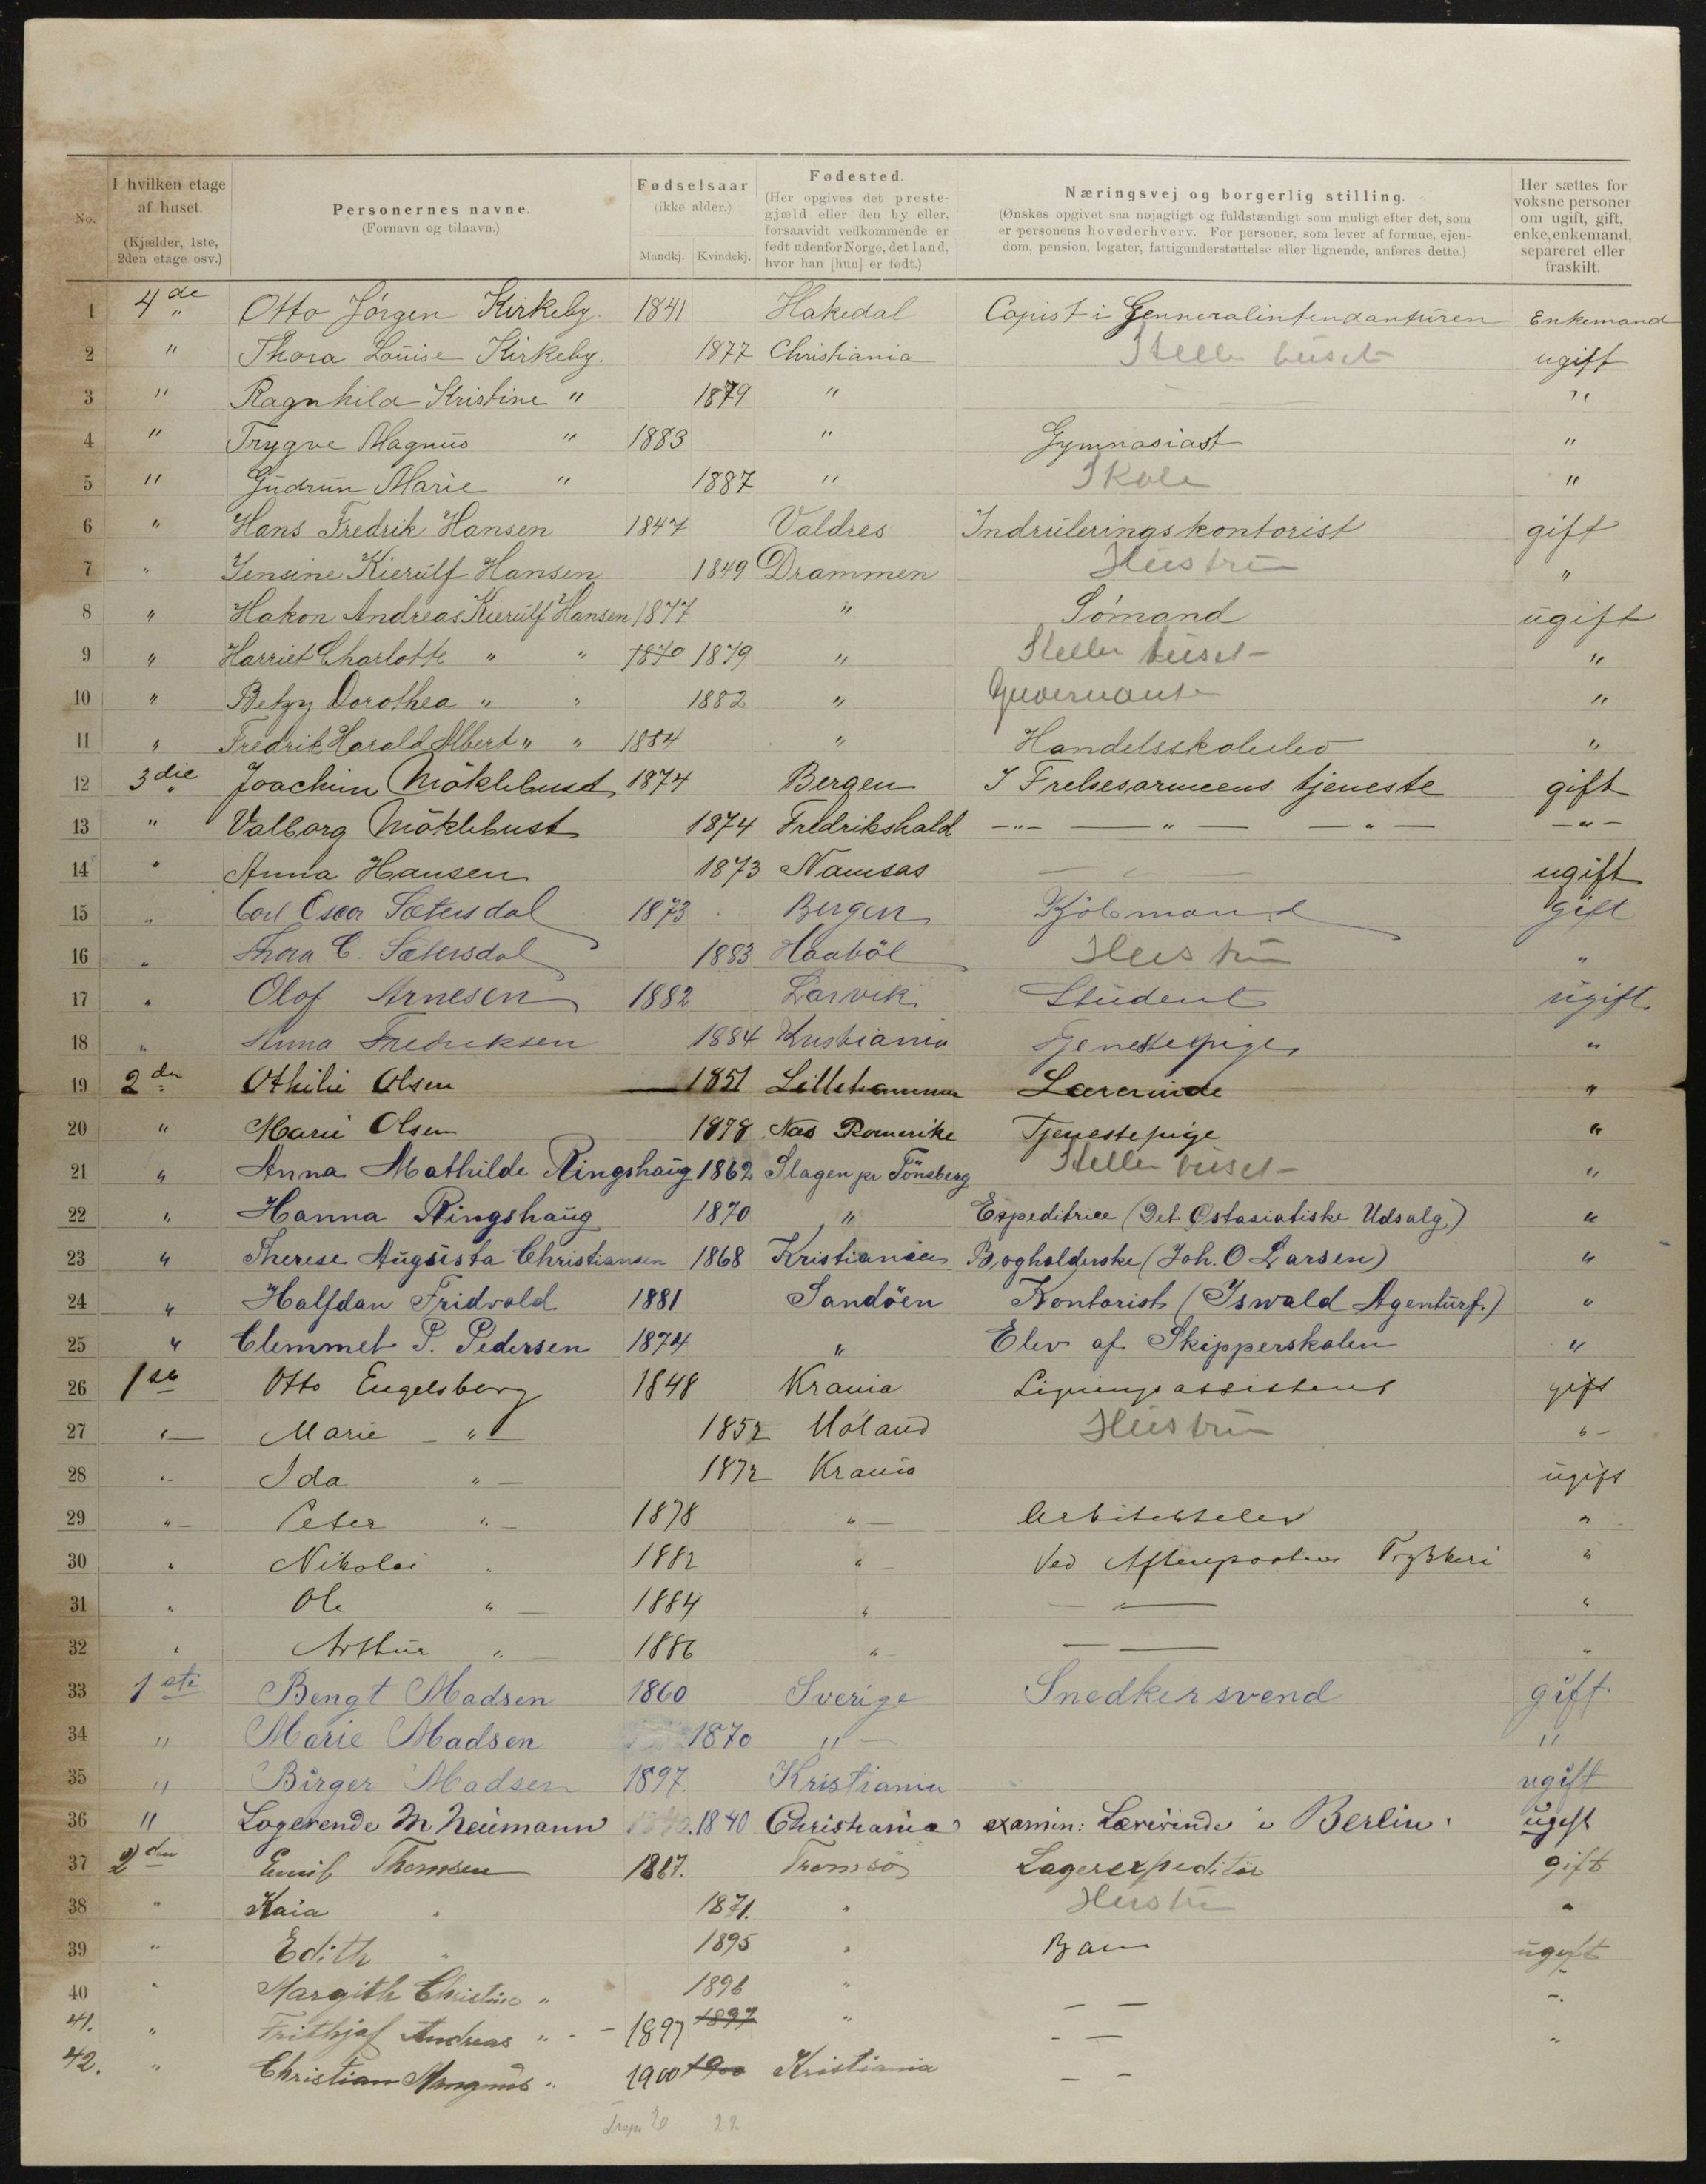 No. I hvilken etage af huset. (Kjælder, 1ste, 2den etage osv.) Personernes navne. (Fornavn og tilnavn.) Fødselsaar (ikke alder.) Mandkj. Kvindekj. Fødested. (Her opgives det prestegjæld eller den by eller, forsaavidt vedkommende er født udenfor Norge, det land, hvor han [hun] er født.) Næringsvej og borgerlig stilling. (Ønskes opgivet saa nøjagtigt og fuldstændigt som muligt efter det, som er personens hovederhverv. For personer, som lever af formue, ejendom, pension, legater, fattigunderstøttelse eller lignende, anføres dette.) Her sættes for voksne personer om ugift, gift, enke, enkemand, separeret eller fraskilt.
1 4de " Otto Jörgen Kirkeby. 1841 Hakedal Copist i Genneralintendanturen Enkemand
2 " Thora Louise Kirkeby. 1877 Christiania Steller huset ugift
3 " Ragnhild Kristine " 1879 " — "
4 " Trygve Magnus " 1883 " Gymnasiast "
5 " Gudrun Marie " 1887 " Skole "
6 " Hans Fredrik Hansen 1847 Valdres Indrulleringskontorist gift
7 " Jensine Kierulf Hansen 1849 Drammen Hustru "
8 " Hakon Andreas Kierulf Hansen 1877 " Sömand ugift
9 " Harriet Charlotte " " 1870 1879 " Steller huset "
10 " Betzy Dorothea " " 1882 " Guvernante "
11 " Fredrik Harald Albert " " 1884 " Handelsskoleelev "
12 3die Joachim Möklebust 1874 Bergen I Frelsesarmeens tjeneste gift
13 " Valborg Möklebust 1874 Fredrikshald —"— — " — — " — —"—
14 " Anna Hansen 1873 Namsos — — — ugift
15 " Carl Oscar Sætersdal 1873 Bergen Kjöbmand gift
16 " Thora C. Sætersdal 1883 Haaböl Hustru "
17 " Olof Arnesen 1882 Larvik Student ugift
18 " Anna Fredriksen 1884 Kristiania Tjenestepige "
19 2den Othilie Olsen 1851 Lillehammer Lærerinde "
20 " Marie Olsen 1878 Næs Romerike Tjenestepige "
21 " Anna Mathilde Ringshaug 1862 Slagen pr Tönsberg Steller huset "
22 " Hanna Ringshaug 1870 " Expeditrice (Det Østasiatiske Udsalg) "
23 " Therese Augusta Christiansen 1868 Kristiania Bogholderske (Joh. O Larsen) "
24 " Halfdan Fridvold 1881 Sandöen Kontorist (Iswald Agenturf.) "
25 " Clemmet P. Pedersen 1874 " Elev af Skipperskolen "
26 1ste Otto Engelsberg 1848 Krania Ligningsassistent gift
27 " — Marie — " — 1852 Höland Hustru " —
28 " - Ida " — 1872 Krania ugift
29 " — Peter " — 1878 " — Arkitektelev "
30 " Nikolai " 1882 " — Ved Aftenpostens Trykkeri "
31 " Ole " — 1884 " — — "
32 " Arthur " — 1886 " - — — "
33 1ste Bengt Madsen 1860 Sverige Snedkersvend gift
34 " Marie Madsen 1870 " — "
35 " Birger Madsen 1897. Kristiania ugift
36 " Logerende M Neumann 1840 Christiania examin: Lærerinde i Berlin. ugift
37 2den Emil Thomsen 1867. Tromsö Lagerexpeditör gift
38 " Kaia " 1871. " Hustru "
39 " Edith " 1895 " Barn ugift
40 " Margith Christine " 1896 " — — "
41. " Frithjof Andreas " - - 1897 1897 " - — "
42. " Christian Magnus " 1900 1900 Kristiania — -
20 22